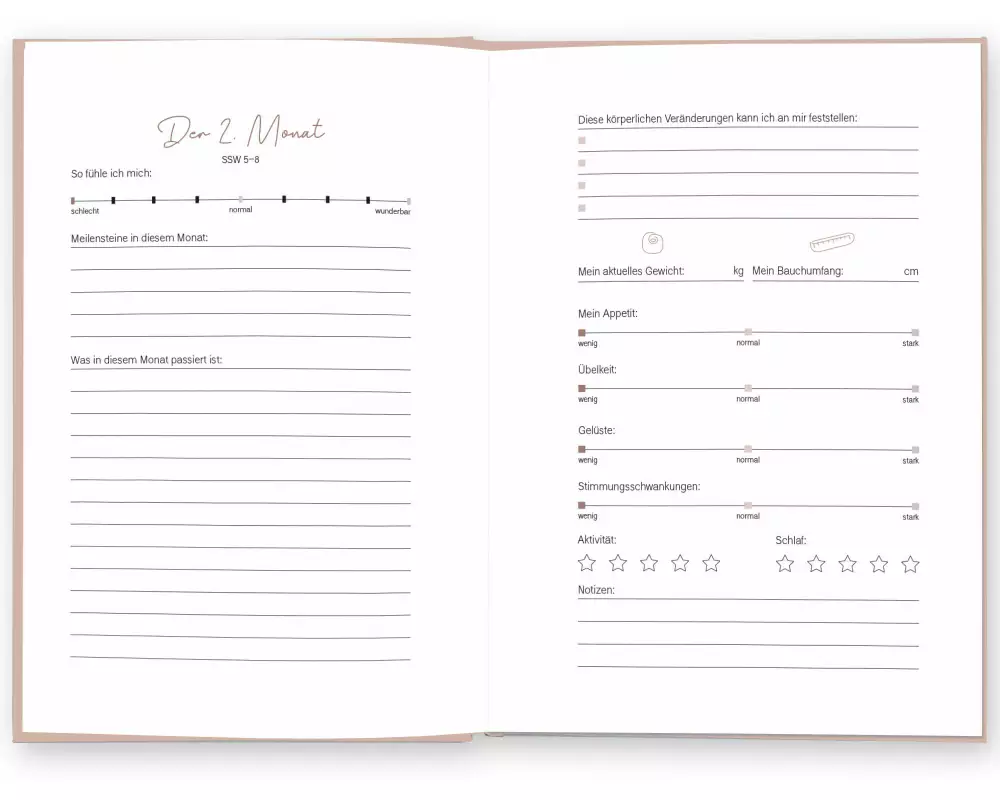 Der 2. Monat
SSW 5–8
So fühle ich mich:
schlecht normal wunderbar
Meilensteine in diesem Monat:
Was in diesem Monat passiert ist:
Diese körperlichen Veränderungen kann ich an mir feststellen:
Mein aktuelles Gewicht: kg Mein Bauchumfang: cm
Mein Appetit:
wenig normal stark
Übelkeit:
wenig normal stark
Gelüste:
wenig normal stark
Stimmungsschwankungen:
wenig normal stark
Aktivität: Schlaf:
Notizen: